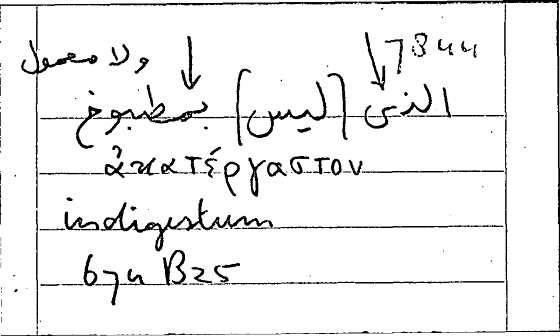 ولا معمول
الذى [ليس] بمطبوخ
ἀκατέργαστον
indigestum
67a B25